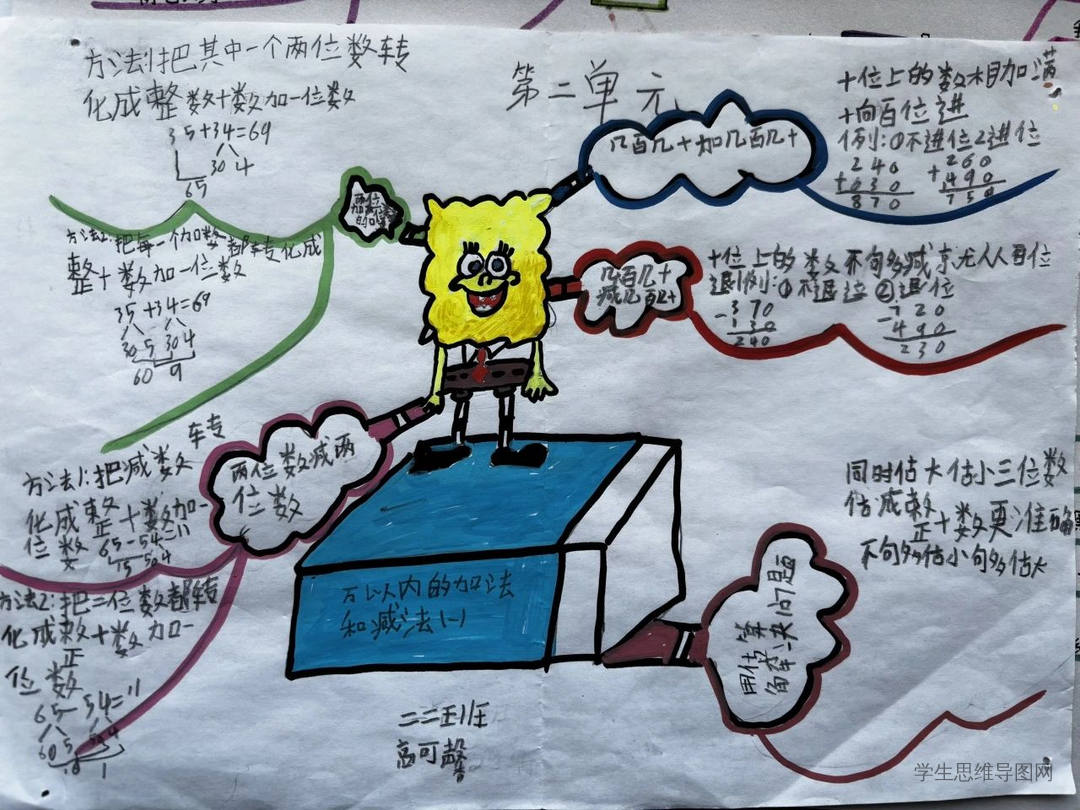 第二单元
方法1:把其中一个两位数转
化成整数十数加一位数
35+34=69
30 4
65
两位
加两
的口
方法2:把每一个加数都转变化成
整十数加一位数
35+34=69
30 5 30 4
60 9
几百几十加几百几十
十位上的数相加满
十向百位进
例:①不进位2进位
240
+630
870
260
+490
750
几百几十
减几百几十
十位上的数不句多减
退例:①不退位②退位
-370
130
240
720
-490
230
两位数减两
位数
方法1:把减数转
化成整十数加一
位数
65-54=11
15 50 4
方法2:把二位数都转
化成整十数加一
位数
65-54=11
60 5 50 4
10 1
万以内的加法
和减法(一)
用估算
解决问题
同时估大估小三位数
估成整十数更准确
不句多估小句多估大
二二班
高可馨
学生思维导图网